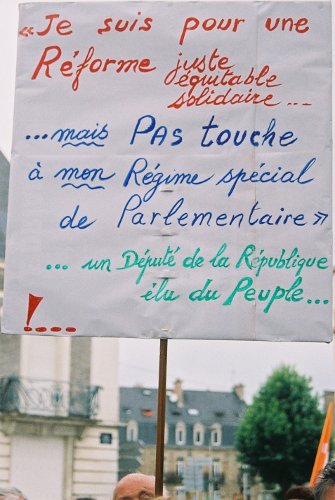 «Je suis pour une
Réforme juste
équitable
solidaire...
...mais PAS touche
à mon Régime spécial
de Parlementaire»
... un Député de la République
élu du Peuple...
!....